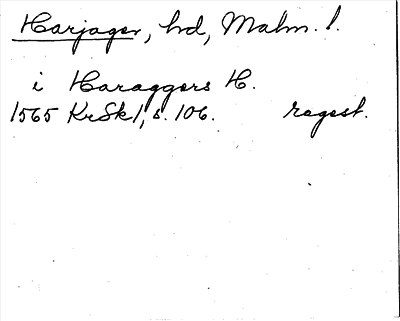 Harjager, hd, Malm. l.
i Haraggers H.
1565 KrSk 1, s. 106. regest.